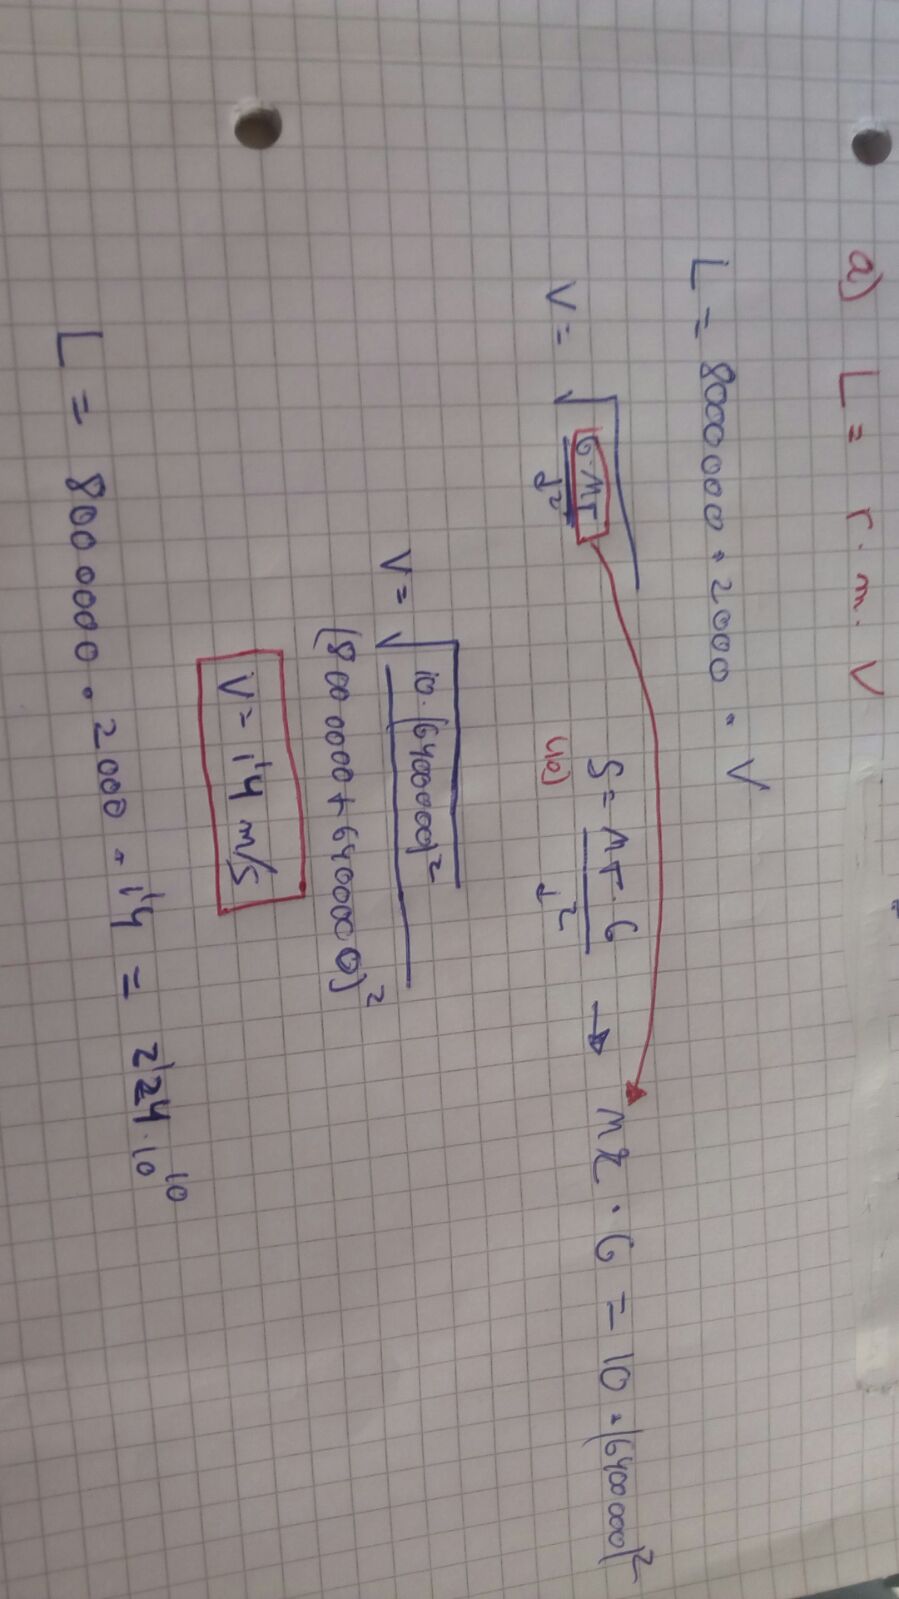 a) L = r · m · V
L = 8000000 · 2000 · V
V = √(G·MT / d²)
g = MT · G / d² → MT · G = 10 · (6400000)²
(10)
V = √(10 · (6400000)² / (8000000 + 6400000)²)
V = 1'4 m/s
L = 8000000 · 2000 · 1'4 = 2'24 · 10¹⁰